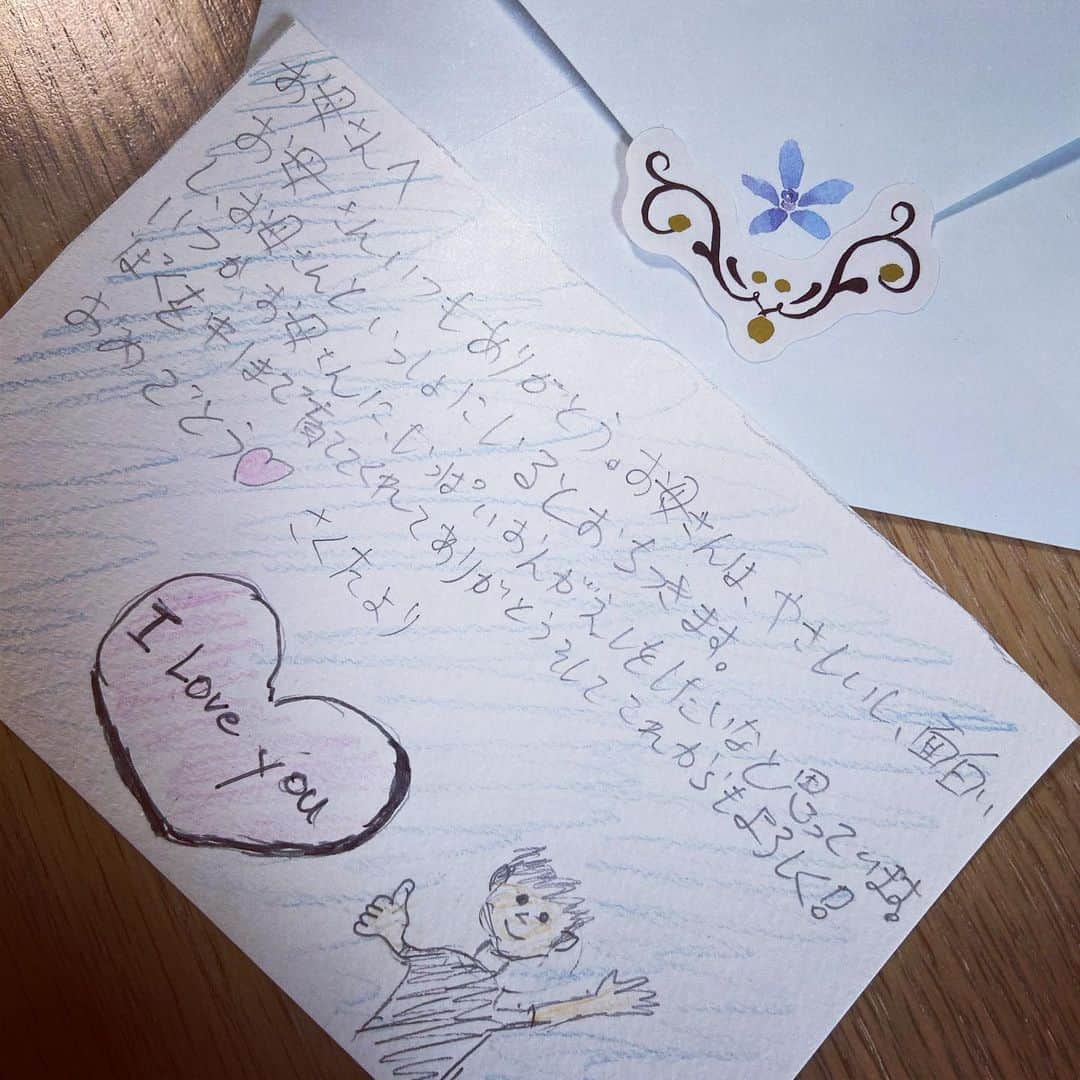 お母さんへ
お母さんいつもありがとう。お母さんは、やさしいし、面白い
し、お母さんといっしょにいるとおちつきます。
いつかお母さんにいっぱいおんがえしをしたいなと思っています。
ぼくを今まで育ててくれてありがとうそしてこれからもよろしく!
おめでとう♡
さくたより
I Love you